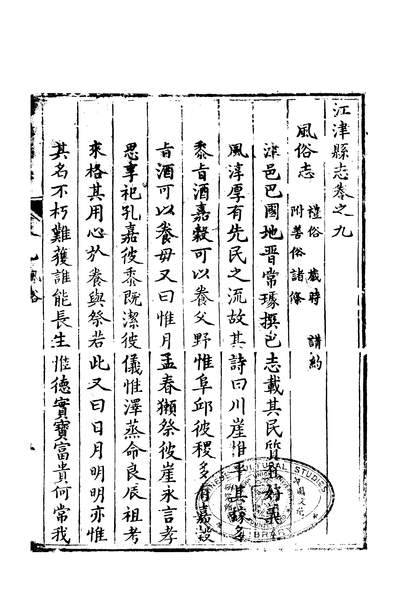 江津縣志卷之九
風俗志 禮俗 歲時 講約
附善俗諸條
津邑巴國地晉常璩撰巴志載其民質直好義
風淳厚有先民之流故其詩曰川崖惟平其稼多
黍旨酒嘉穀可以養父野惟阜邱彼稷多有嘉穀
旨酒可以養母又曰惟月孟春獺祭彼崖永言孝
思享祀孔嘉彼黍既潔彼儀惟澤蒸命良辰祖考
來格其用心於養與祭若此又曰日月明明亦惟
其名不朽難獲誰能長生惟德實寶富貴何常我